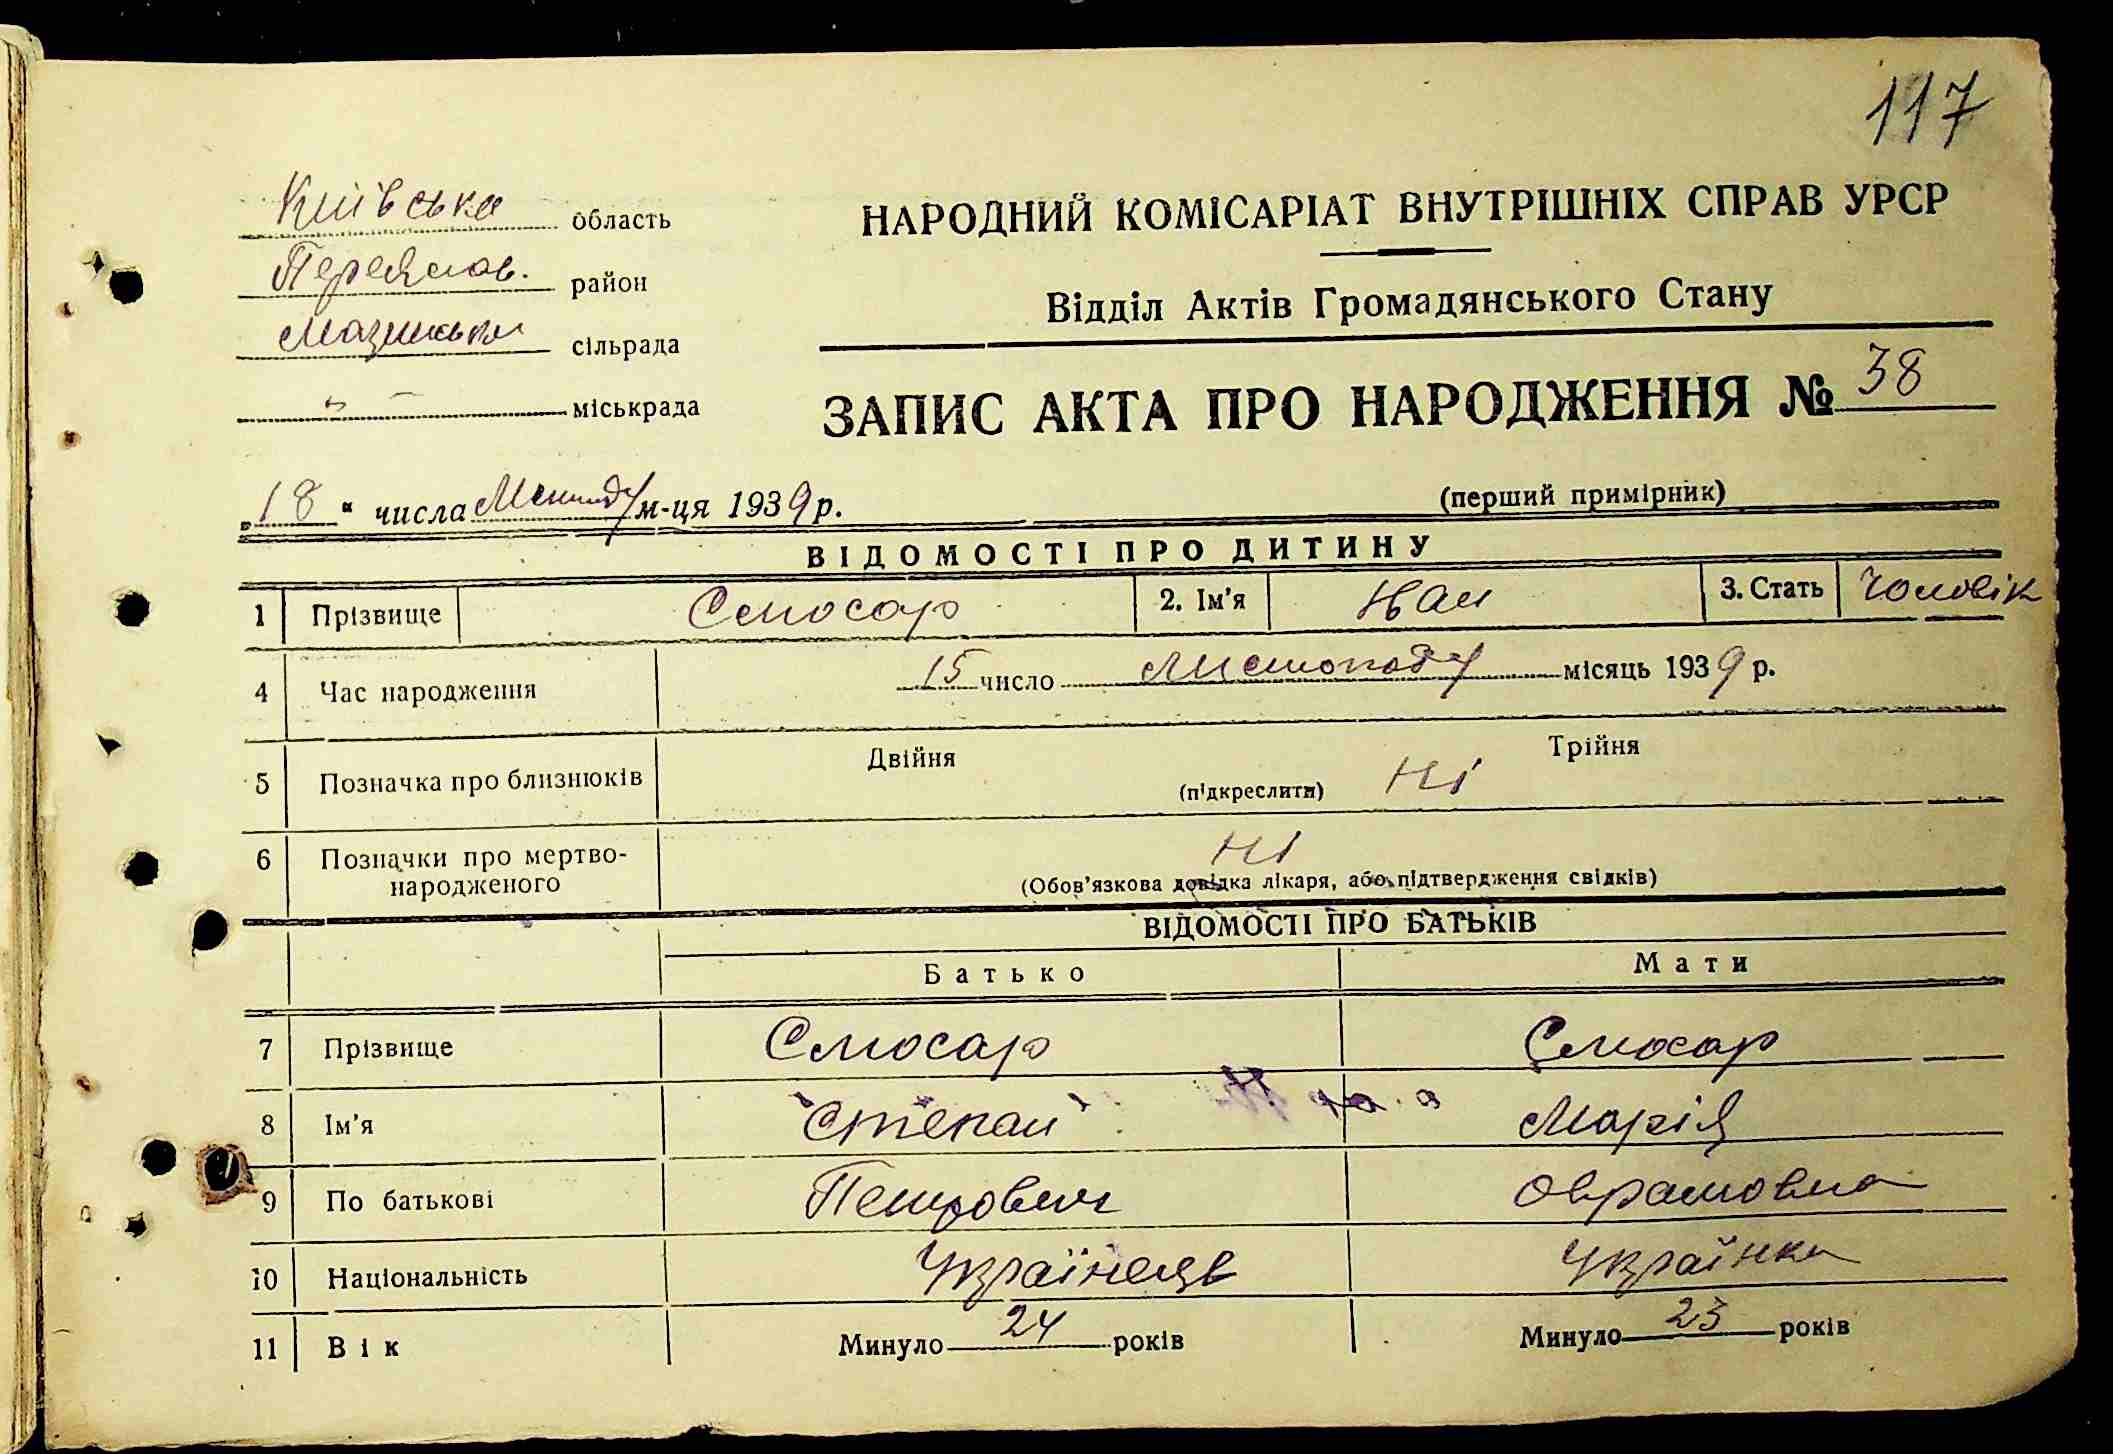 117
Київська область
Переяслав. район
сільрада
міськрада
НАРОДНИЙ КОМІСАРІАТ ВНУТРІШНІХ СПРАВ УРСР
Відділ Актів Громадянського Стану
ЗАПИС АКТА ПРО НАРОДЖЕННЯ № 38
„18“ числа м-ця 1939 р.
(перший примірник)
ВІДОМОСТІ ПРО ДИТИНУ
1 Прізвище Слюсар 2. Ім'я Іван 3. Стать Чоловік
4 Час народження 15 число Листопаду місяць 1939 р.
5 Позначка про близнюків Двійня (підкреслити) Ні Трійня
6 Позначки про мертво-
народженого Ні
(Обов'язкова довідка лікаря, або підтвердження свідків)
ВІДОМОСТІ ПРО БАТЬКІВ
Батько Мати
7 Прізвище Слюсар Слюсар
8 Ім'я Степан Марія
9 По батькові Петрович Оврамовна
10 Національність Українець Українка
11 Вік Минуло 24 років Минуло 23 років